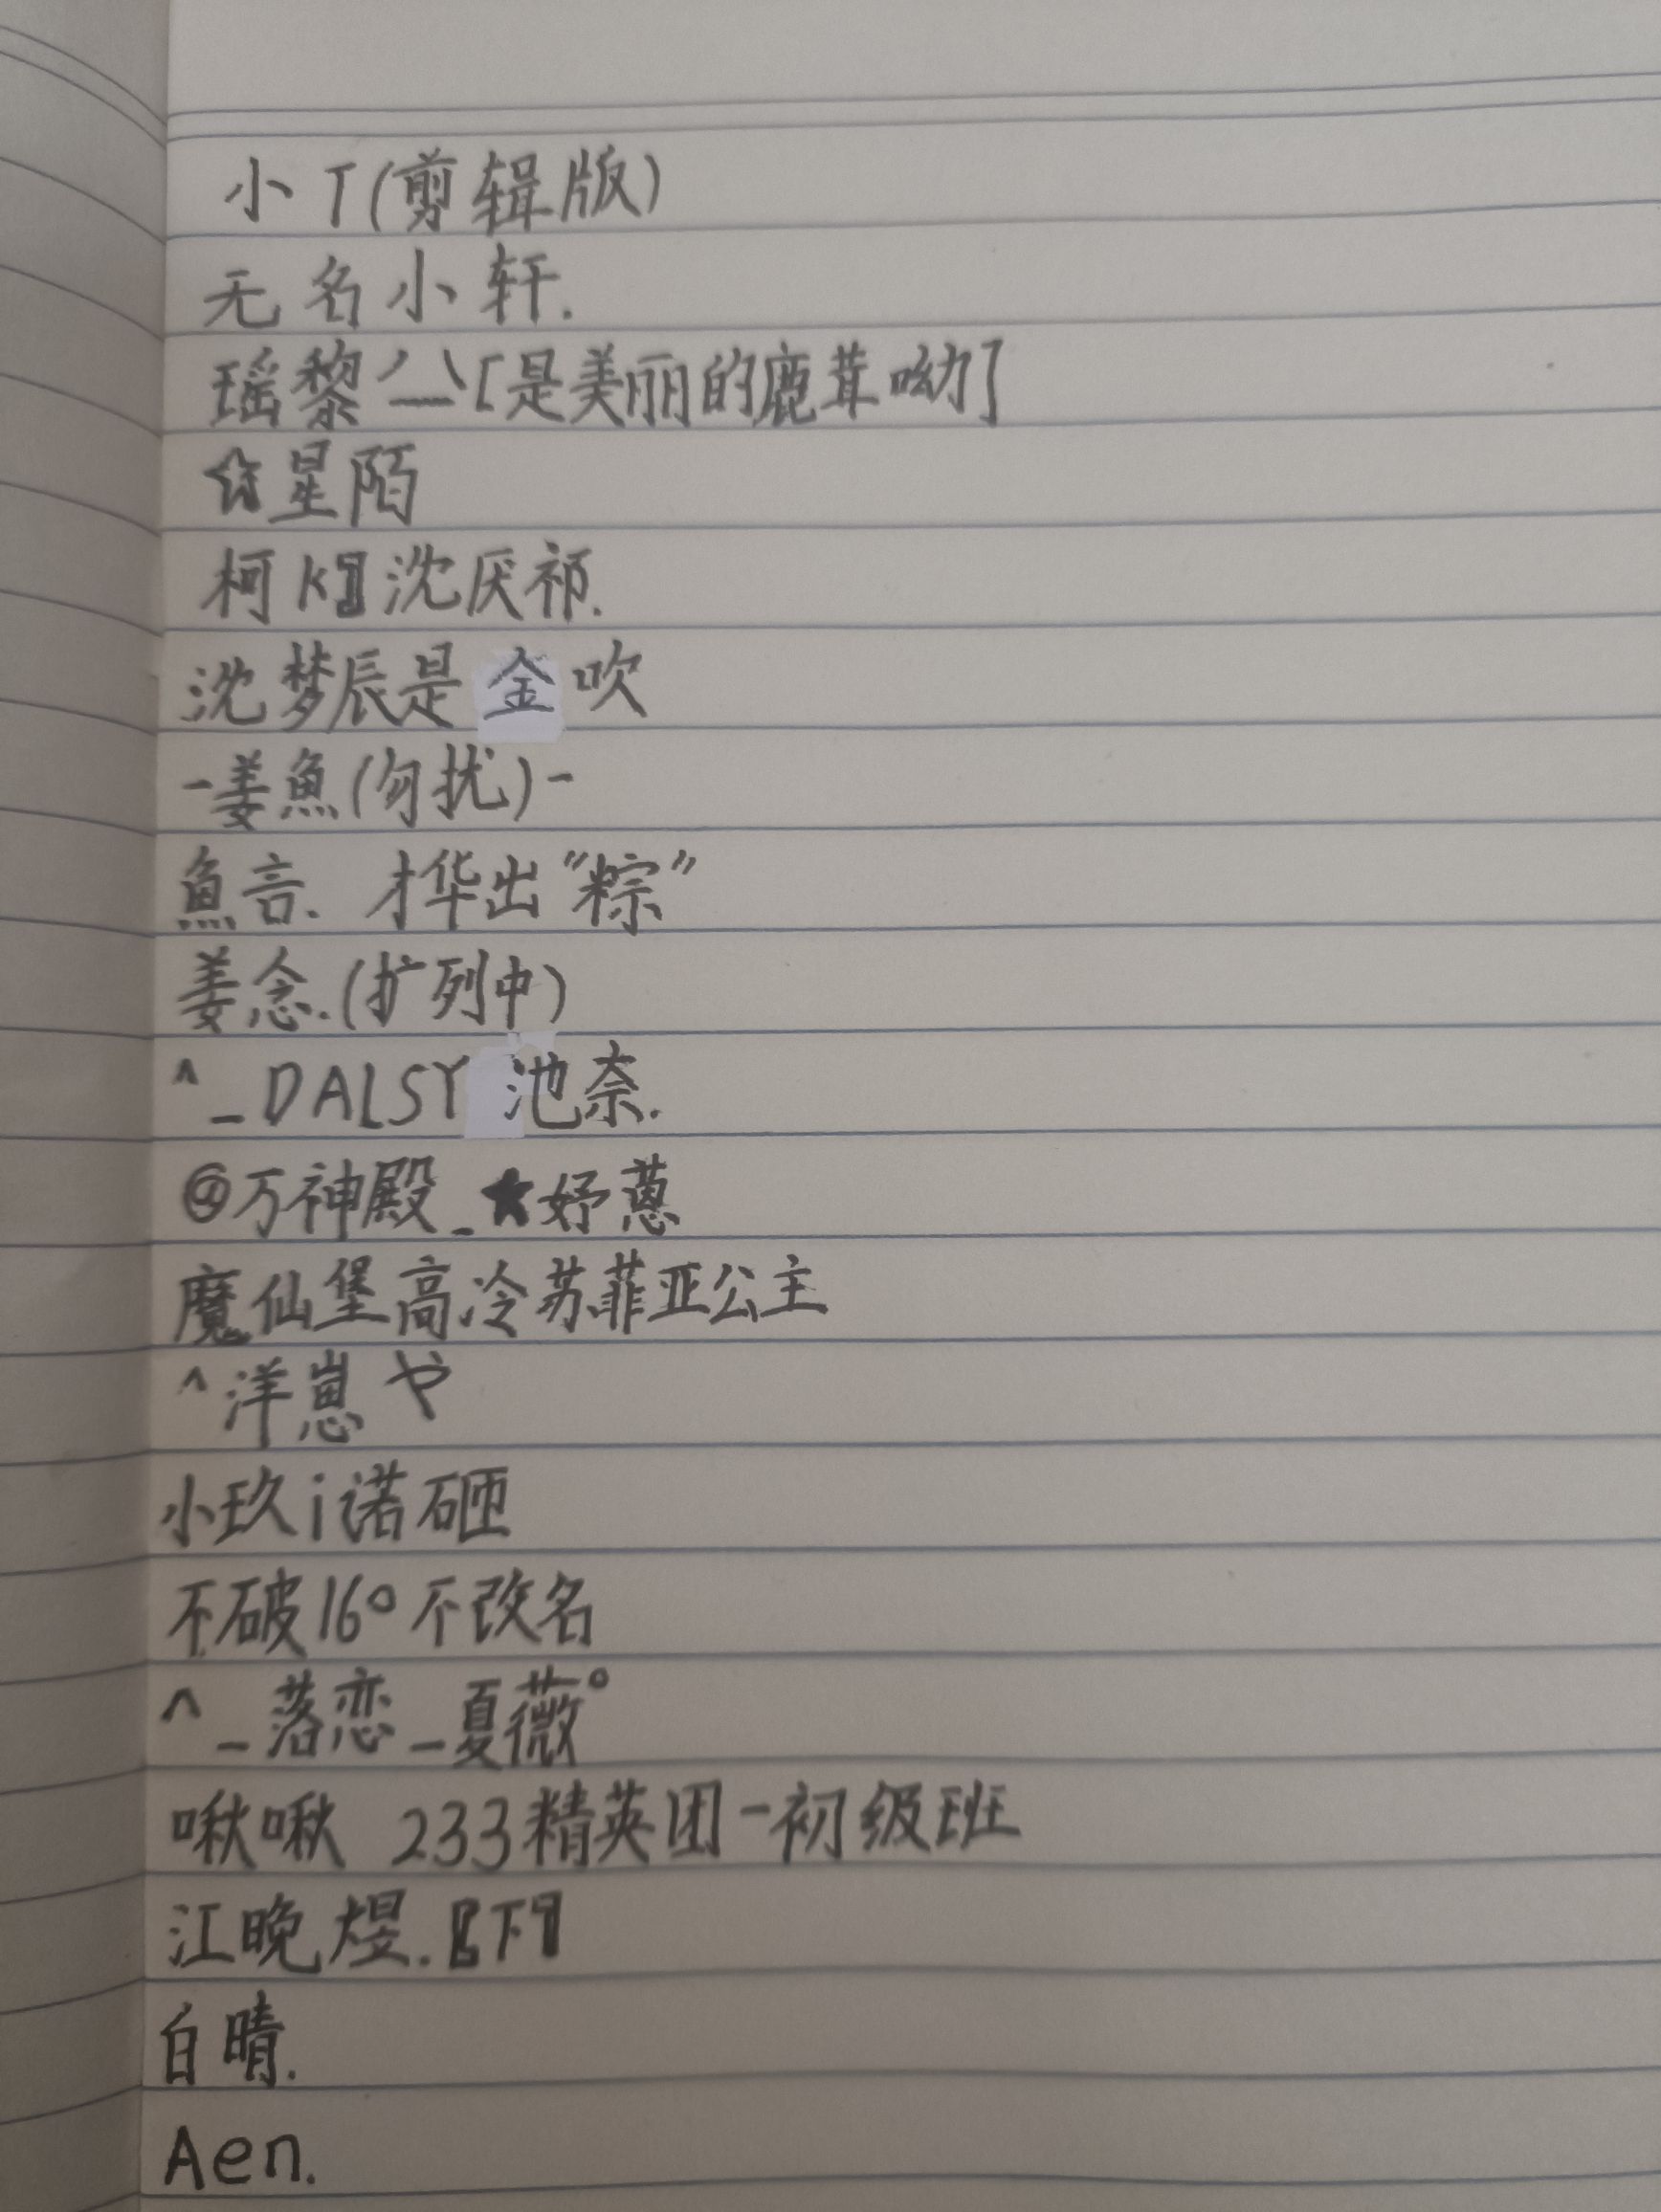 小T(剪辑版)
无名小轩.
瑶黎[是美丽的鹿茸呦]
☆星陌
柯K】沈厌祁.
沈梦辰是金吹
-姜魚(勿扰)-
魚言. 才华出"粽"
姜念.(扩列中)
^_DALSY池奈.
万神殿_★妤蒽
魔仙堡高冷苏菲亚公主
^洋崽や
小玖i诺砸
不破16°不改名
^_落恋_夏薇°
啾啾 233精英团-初级班
江晚煜.【下】
白晴.
Aen.